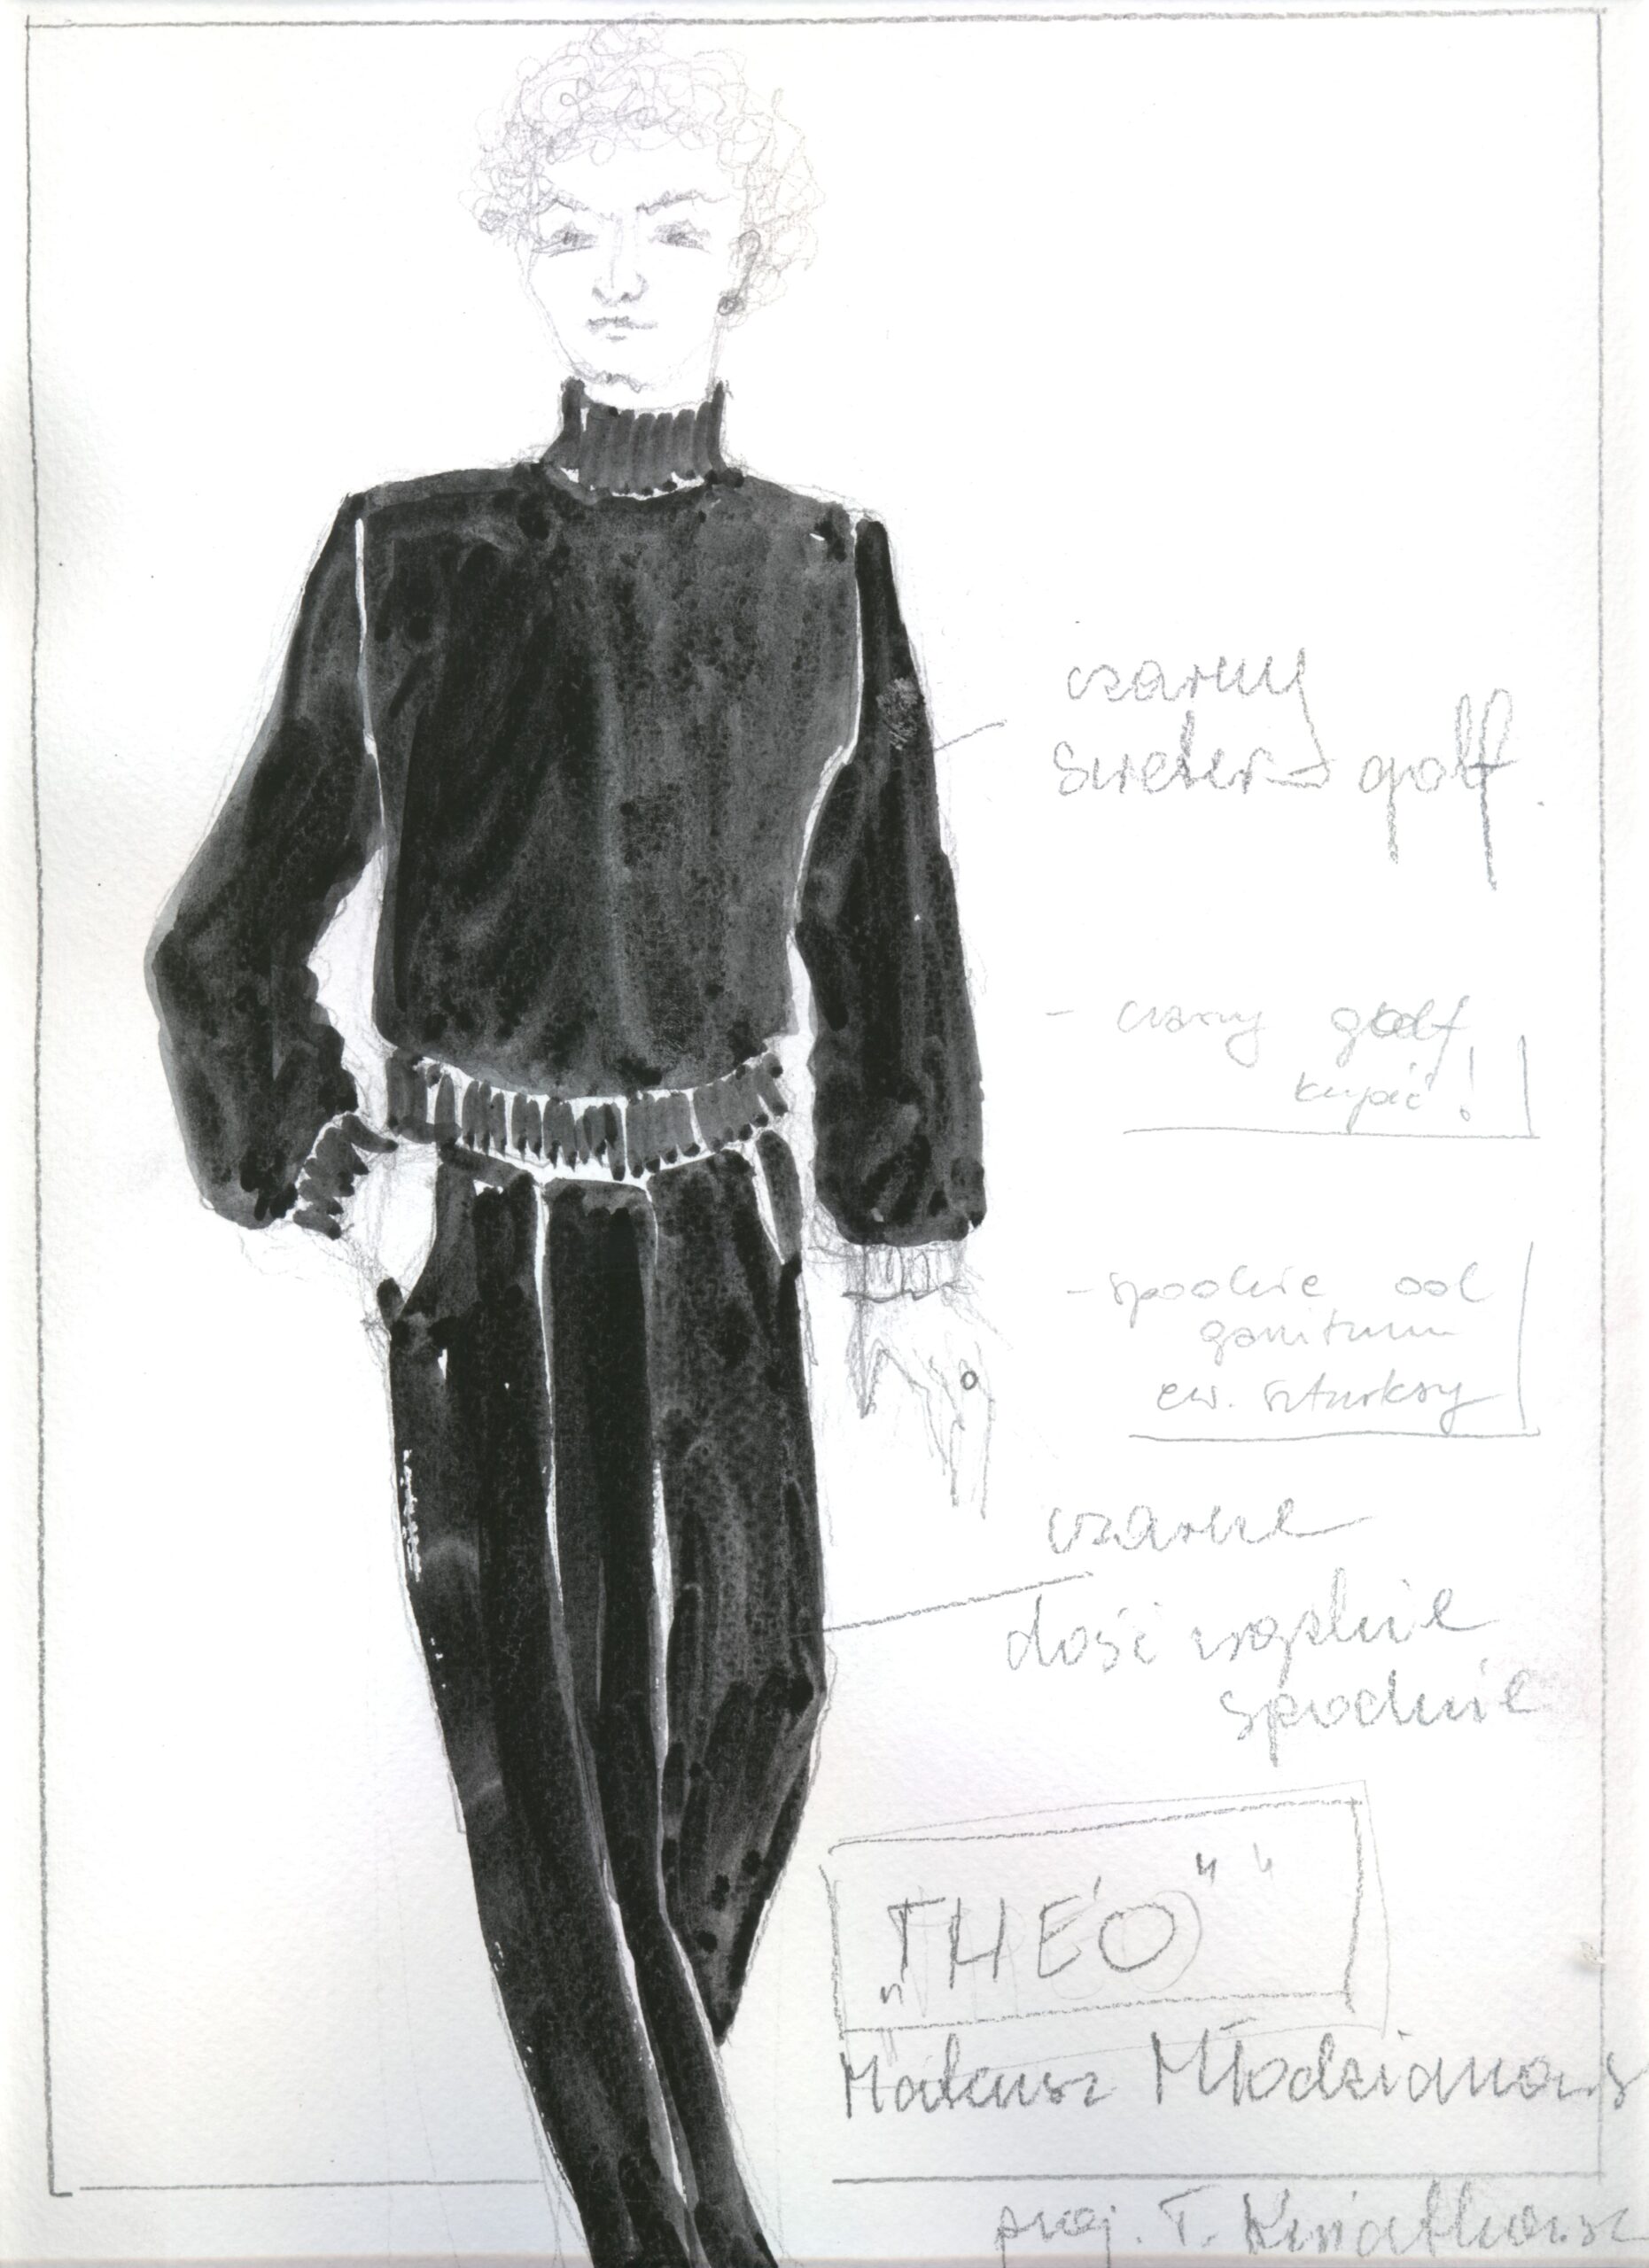 czarny
sweter golf.
- czarny golf
kupić!
- spodnie od
garnituru
ew. sztruksy
czarne
dość wąskie
spodnie
„THÉO”
Mateusz Młodzianows
proj. T. Kwiatkowsk